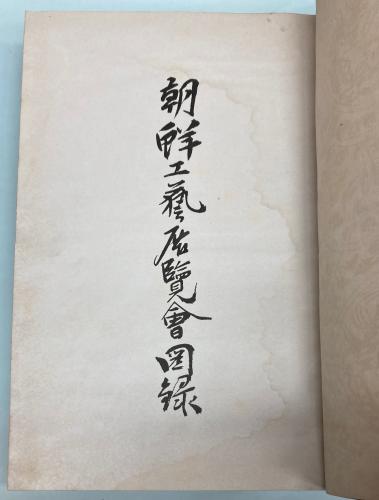 朝鮮工藝展覽會図錄